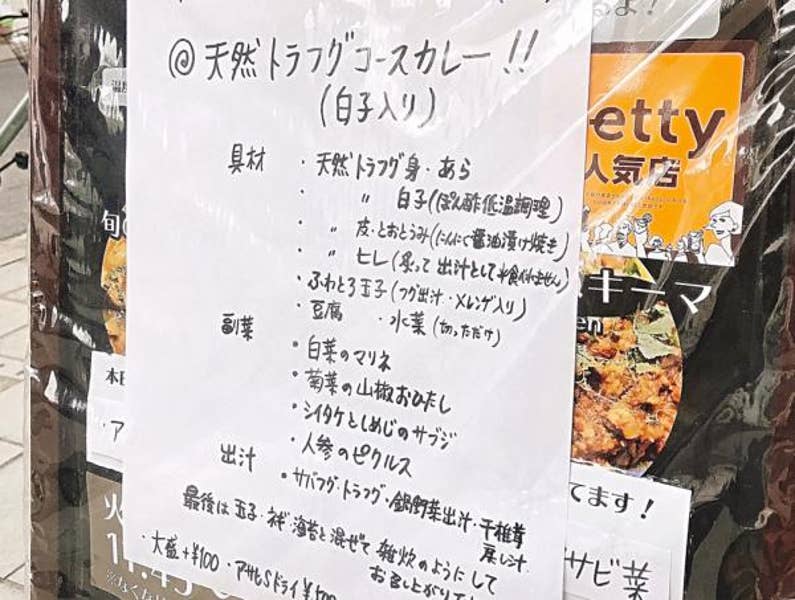 @天然トラフグコースカレー!!
(白子入り)
具材 ・天然トラフグ身・あら
・ 〃 白子(ぽん酢低温調理)
・ 〃 皮・とおとうみ(にんにく醤油漬け焼き)
・ 〃 ヒレ(炙って出汁として※食べれません)
・ふわとろ玉子(フグ出汁・メレンゲ入り)
・豆腐 ・水菜(切っただけ)
副菜
・白菜のマリネ
・菊菜の山椒おひたし
・シイタケとしめじのサブジ
・人参のピクルス
出汁
・サバフグ・トラフグ・鍋野菜出汁・干椎茸
戻し汁
最後は玉子・ネギ・海苔と混ぜて雑炊のようにして
お召し上がり
・大盛+¥100 ・アサヒSドライ
etty
人気店
キーマ
en
旬
本日
ア
火
てます!
サビ菜
るよ!